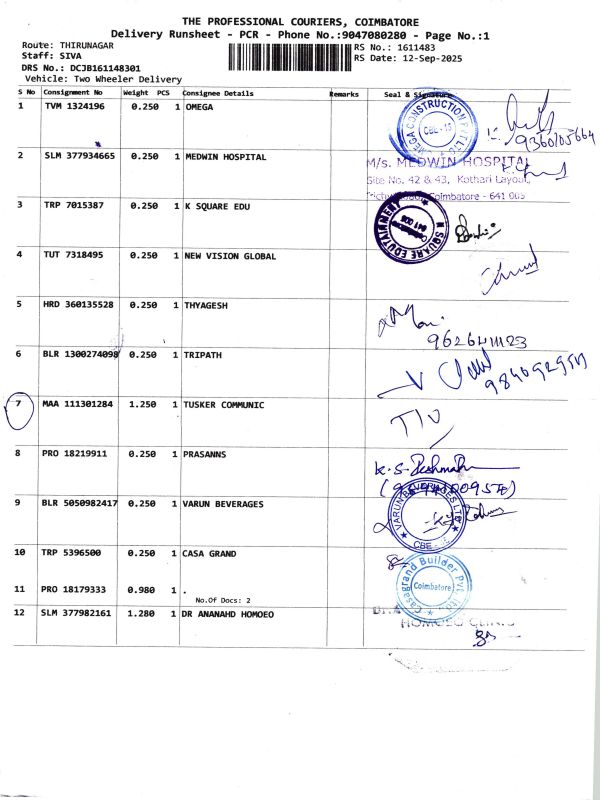 THE PROFESSIONAL COURIERS, COIMBATORE
Delivery Runsheet - PCR - Phone No.:9047080280 - Page No.:1
Route: THIRUNAGAR
RS No.: 1611483
Staff: SIVA
RS Date: 12-Sep-2025
DRS No.: DCJB161148301
Vehicle: Two Wheeler Delivery
S No Consignment No Weight PCS Consignee Details Remarks Seal & Signature
1 TVM 1324196 0.250 1 OMEGA
OMEGA CONSTRUCTION PVT LTD
CBE-15
2 SLM 377934665 0.250 1 MEDWIN HOSPITAL
M/s. MEDWIN HOSPITAL
Site No. 42 & 43, Kothari Layout,
Coimbatore - 641 005
3 TRP 7015387 0.250 1 K SQUARE EDU
K SQUARE EDUTAINMENT
Coimbatore
641 005
4 TUT 7318495 0.250 1 NEW VISION GLOBAL
5 HRD 360135528 0.250 1 THYAGESH
6 BLR 1300274098 0.250 1 TRIPATH
7 MAA 111301284 1.250 1 TUSKER COMMUNIC
8 PRO 18219911 0.250 1 PRASANNS
9 BLR 5050982417 0.250 1 VARUN BEVERAGES
VARUN BEVERAGES LTD
CBE
10 TRP 5396500 0.250 1 CASA GRAND
Casagrand Builder Pvt. Ltd
Coimbatore
11 PRO 18179333 0.980 1 .
No.Of Docs: 2
12 SLM 377982161 1.280 1 DR ANANAHD HOMOEO